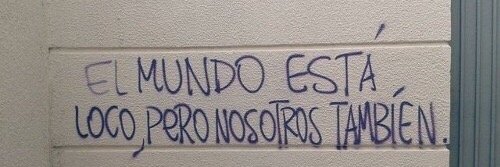 El MUNDO ESTÁ
LOCO, PERO NOSOTROS TAMBIÉN.